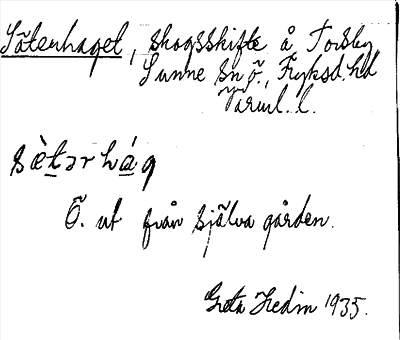 Sätenhaget, skogsskifte å Torsby
Sunne sn ö., Fryksd. hd
Värml. l.
sὲtər hág
Ö. ut från själva gården.
Greta Hedin 1935.